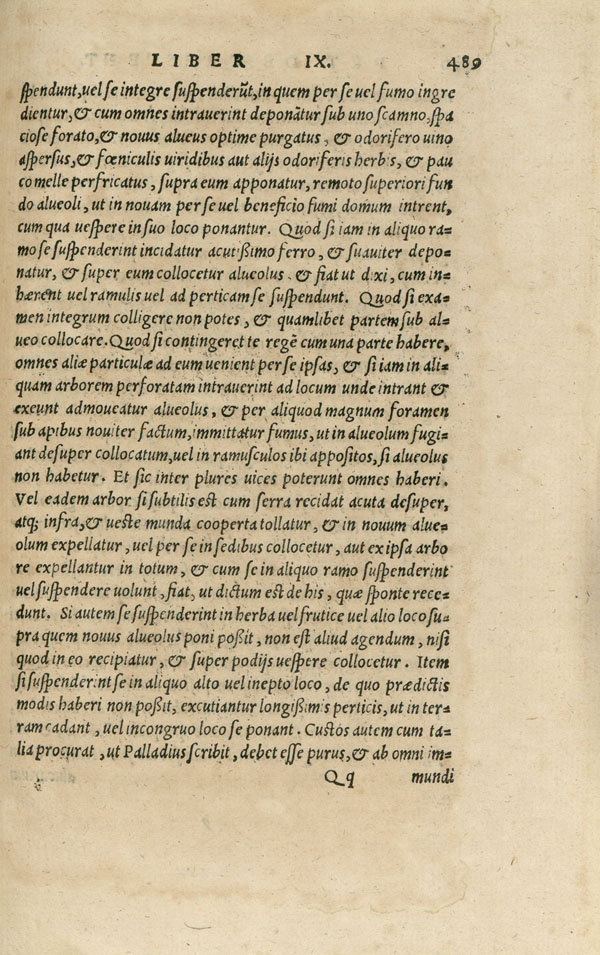 LIBER IX. 489
spendunt, uel se integre suspenderũt, in quem per se uel fumo ingre
dientur, & cum omnes intrauerint deponãtur sub uno scamno, spa
ciose forato, & nouus alueus optime purgatus, & odorifero uino
aspersus, & fœniculis uiridibus aut alijs odoriferis herbis, & pau
co melle perfricatus, supra eum apponatur, remoto superiori fun
do alueoli, ut in nouam per se uel beneficio fumi domum intrent,
cum qua uespere in suo loco ponantur. Quod si iam in aliquo ra=
mo se suspenderint incidatur acutißimo ferro, & suauiter depo=
natur, & super eum collocetur alueolus. & fiat ut dixi, cum in=
hærent uel ramulis uel ad perticam se suspendunt. Quod si exa=
men integrum colligere non potes, & quamlibet partem sub al=
ueo collocare. Quod si contingeret te regẽ cum una parte habere,
omnes aliæ particulæ ad eum uenient per se ipsas, & si iam in ali=
quam arborem perforatam intrauerint ad locum unde intrant &
exeunt admoueatur alueolus, & per aliquod magnum foramen
sub apibus nouiter factum, immittatur fumus, ut in alueolum fugi=
ant desuper collocatum, uel in ramusculos ibi appositos, si alueolus
non habetur. Et sic inter plures uices poterunt omnes haberi.
Vel eadem arbor si subtilis est cum serra recidat acuta desuper,
atq; infra, & ueste munda cooperta tollatur, & in nouum alue=
olum expellatur, uel per se in sedibus collocetur, aut ex ipsa arbo
re expellantur in totum, & cum se in aliquo ramo suspenderint
uel suspendere uolunt, fiat, ut dictum est de his, quæ sponte rece=
dunt. Si autem se suspenderint in herba uel frutice uel alio loco su=
pra quem nouus alueolus poni poßit, non est aliud agendum, nisi
quod in eo recipiatur, & super podijs uespere collocetur. Item
si suspenderint se in aliquo alto uel inepto loco, de quo prædictis
modis haberi non poßit, excutiantur longißimis perticis, ut in ter=
ram cadant, uel incongruo loco se ponant. Custos autem cum ta=
lia procurat, ut Palladius scribit, debet esse purus, & ab omni im=
Qq mundi